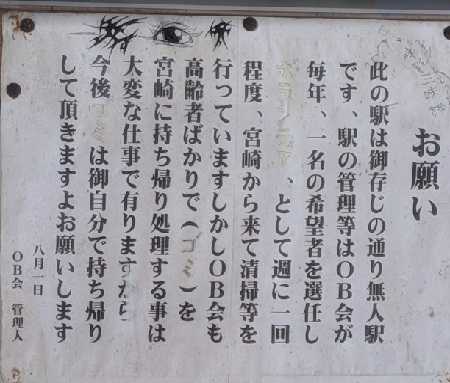 お願い
此の駅は御存じの通り無人駅
です、駅の管理等はOB会が
毎年、一名の希望者を選任し
、として週に一回
程度、宮崎から来て清掃等を
行っていますしかしOB会も
高齢者ばかりで(ゴミ)を
宮崎に持ち帰り処理する事は
大変な仕事で有りますから
今後 は御自分で持ち帰り
して頂きますよお願いします
八月一日
OB会 管理人